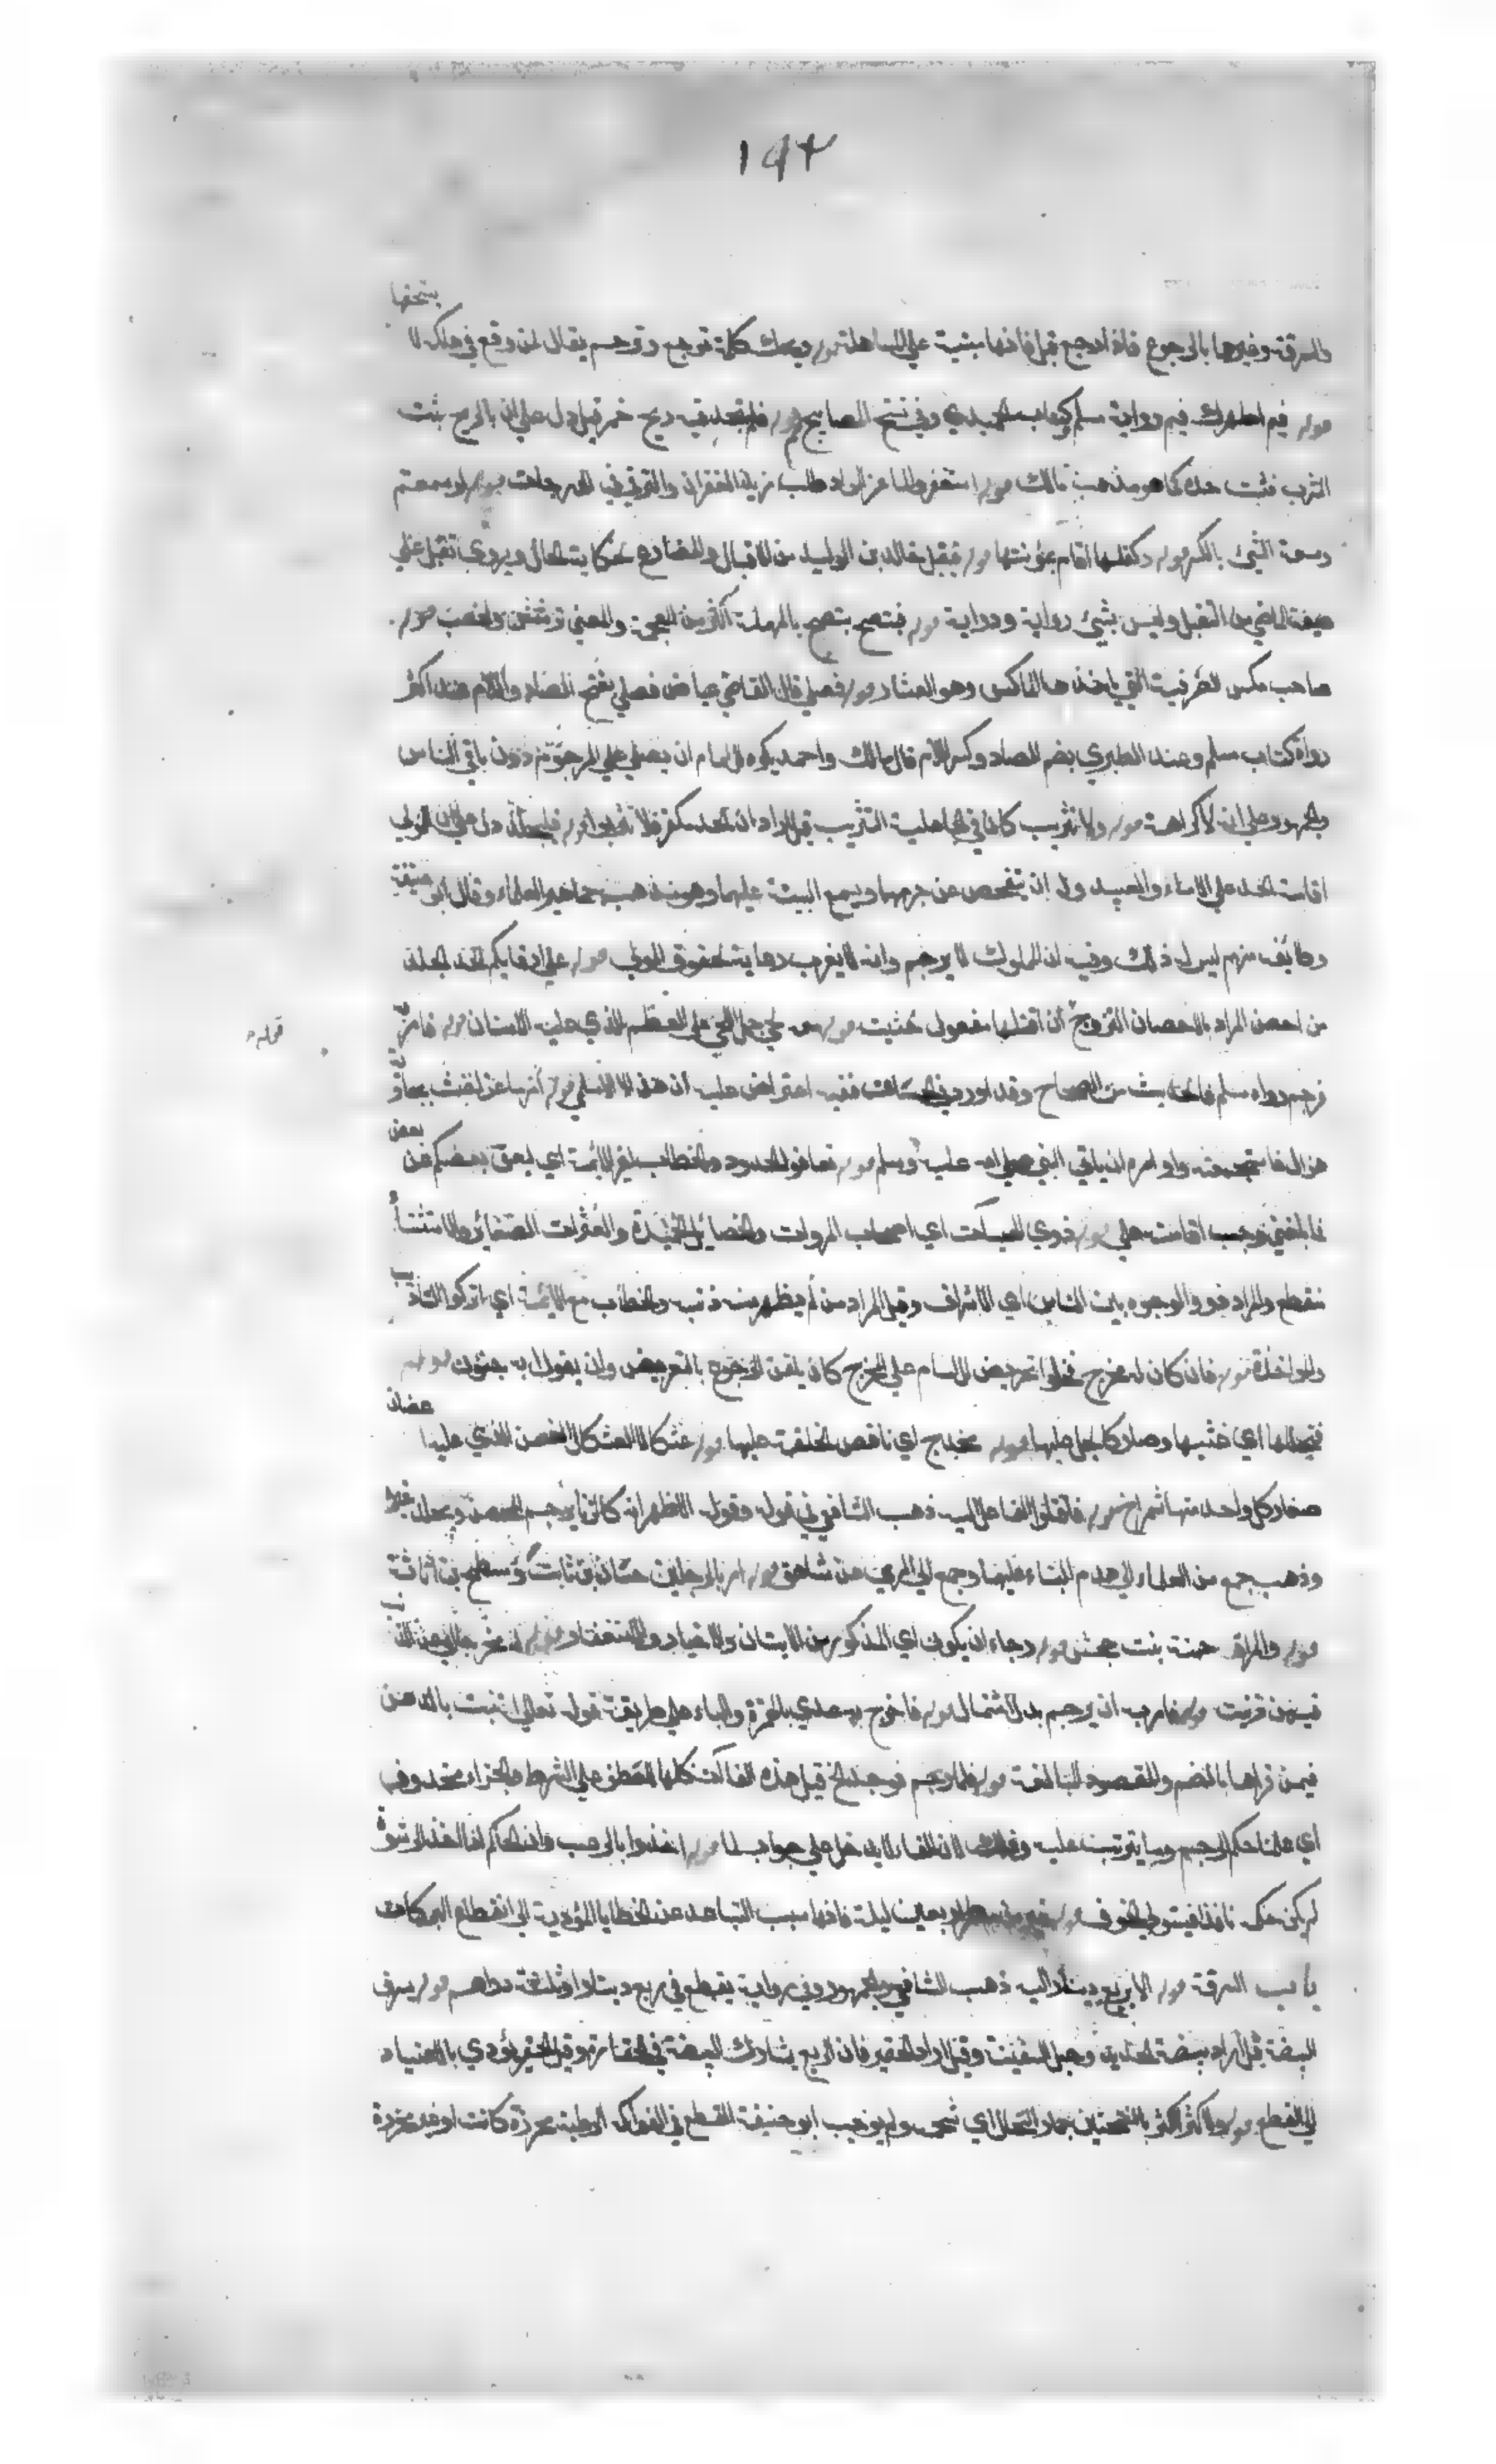 ١٩٢
يستحقها
والسرقة وغيرها بالرجوع فاذا رجع قبل فانها مبنية على المساهلة قوله ويحك كلمة توجع وترحم يقال لمن وقع في هلكة لا
قوله فيم اطهرك فيم رواية مسلم وكتاب الحميدي وفي نسخ المصابيح قوله فلم يجد منه ريح خمر قيل دل على ان بالريح يثبت
الشرب فثبت حده كما هو مذهب مالك قوله استغفروا لماعز المراد طلب مزيد الغفران والترقي في الدرجات قوله لوسعتهم
وسعة الشيء بالكسر قوله وكفلها اقام بمؤنتها قوله فيقبل خالد بن الوليد من الاقبال والمضارع لحكاية الحال ويروى تقبل على
صيغة الماضي من التقبل وليس بشيء رواية ودراية قوله فتنضح بالمهملة اكثر من المعجمة والمعنى ترشش وانصب قوله
صاحب مكس الضريبة التي ياخذها الماكس وهو العشار قوله فصلى قال القاضي عياض فصلى بفتح الصاد واللام عند اكثر
رواة كتاب مسلم وعند الطبري بضم الصاد وكسر اللام قال مالك واحمد يكره للامام ان يصلي على المرجوم دون باقي الناس
والجمهور على انه لا كراهة قوله ولا يثرب كان في الجاهلية التثريب قيل اراد ان الحد مكفر فلا تثريب قوله فليجلد دل على ان للمولى
اقامة الحد على الاماء والعبيد وله ان يتفحص عن جرمهما ويسمع البينة عليهما وهو مذهب جماهير العلماء وقال ابو حنيفة
وطائفة منهم ليس له ذلك وفيه ان المملوك لا يرجم وانه لا يغرب رعاية لحقوق المولى قوله على ارقائكم الحد الجلد
من احصن المراد بالاحصان التزوج ان اقتلها مفعول خشيت قوله لحي جمل اللحي على العظم الذي عليه الاسنان قوله فامر به
قوله
فرجم رواه مسلم فالحديث من الصحاح وقد اورده في الحسان ففيه اعتراض عليه ان هزالا الاسلمي امر ماعزا
هزال وامره ان ياتي النبي صلى الله عليه وسلم قوله تعافوا الحدود والخطاب لغير الائمة اي ليعف بعضكم عن بعض
فما بلغني وجب اقامته علي قوله ذوي الهيآت اي اصحاب المروات والخصائل الحميدة والعثرات الصغائر والاستثناء
منقطع والمراد ذوو الوجوه بين الناس اي الاشراف وقيل المراد من لم يظهر منه ذنب والخطاب مع الائمة اي اتركوا التاديب
والمواخذة قوله فان كان له مخرج فخلوا تحريض للامام على المخرج كان يلقن الرجوع بالتعريض وان يقول ابه جنون قوله
فتجللها اي غشيها وصار كالجل عليها قوله مخدج اي ناقص الخلقة قوله عثكالا العثكال الغصن الذي عليه اغصان
صغار كل واحد منها شمراخ قوله فاقتلوا الفاعل اليه ذهب الشافعي في قول وقوله الاظهر انه كالزنا يرجم المحصن ويجلد غيره
وذهب جمع من العلماء الى هدم البناء عليهما وجمع الى الرمي من شاهق قوله امر بالرجلين حسان بن ثابت ومسطح بن اثاثة
قوله والمرأة حمنة بنت جحش قوله رجاء ان يكون اي المذكور من الاتيان والاخبار والاستغفار
فيمن زنيت قوله فامر به ان يرجم بدل اشتمال قوله فاخرج به عدي بالهمزة والباء على طريقة قوله تعالى تنبت بالدهن
فيمن قراها بالضم والمقصود المبالغة قوله فلما رجم فوجد الخ قيل هذه الفاآت كلها للعطف على الشرط والجزاء محذوف
اي علمنا حكم الرجم وما يترتب عليه وذلك لان الفاء لا يدخل على جواب لما قوله اخذوا بالرعب وان الحاكم اذا اخذ الرشوة
لم يكن حكمه نافذا فيستولي الخوف قوله خير من مطر اربعين ليلة فانها سبب التباعد عن الخطايا المؤدية الى انقطاع البركات
باب السرقة قوله الا بربع دينار اليه ذهب الشافعي والجمهور وفي رواية يقطع في ربع دينار او ثلاثة دراهم قوله يسرق
البيضة قيل اراد بيضة الحديد وحبل السفينة وقيل اراد الحقير فان الربع يشارك البيضة في الحقارة وقيل الحقير يؤدي بالاعتياد
الى القطع قوله ولا كثر الكثر بالفتحتين جمار النخل اي شحمه ولم يوجب ابو حنيفة القطع في الفواكه الرطبة محرزة كانت او غير محرزة